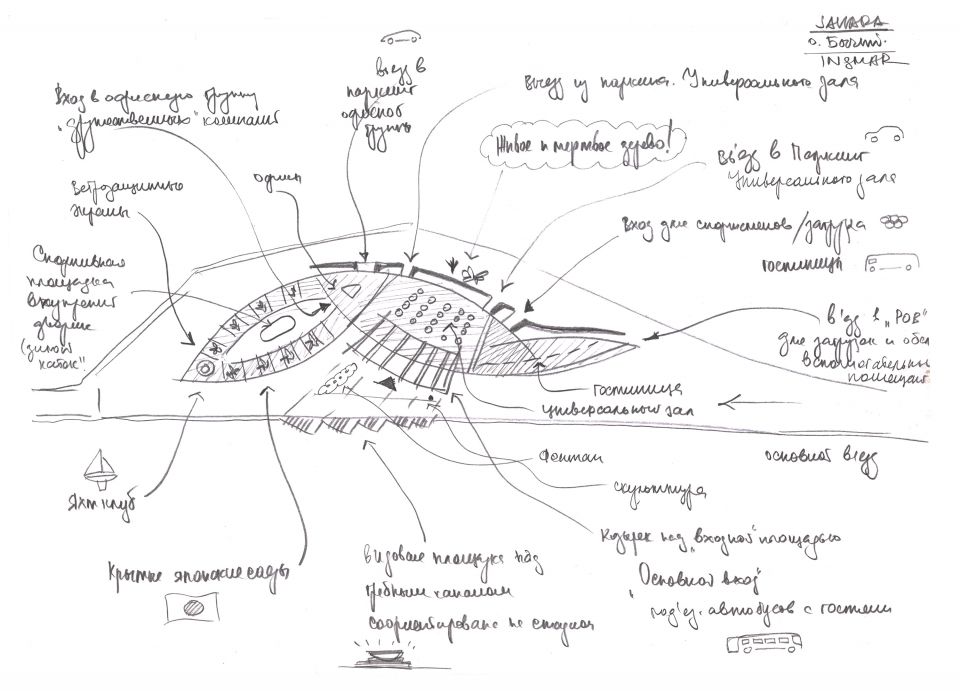 SAHARA
INGMAR
Въезд в
паркинг
офисной
группы
Выезд из паркинга Универсального зала
Вход в офисную группу
"дружественных" компаний
Живое и мертвое дерево!
Въезд в Паркинг
Универсального зала
Ветрозащитные
экраны
офисы
Вход для спортсменов/загрузка
гостиница
Спортивная
площадка
внутренний
дворик
(зимой
каток"
въезд в "РОВ"
для загрузок и обсл
вспомогательных
помещений
гостиница
универсальный зал
фонтан
основной въезд
скульптура
Яхт клуб
Козырек над "входной" площадью
Крытые японские сады
видовые площадки над
гребным каналом
сориентированы на стадион
"Основной вход"
под'езд автобусов с гостями